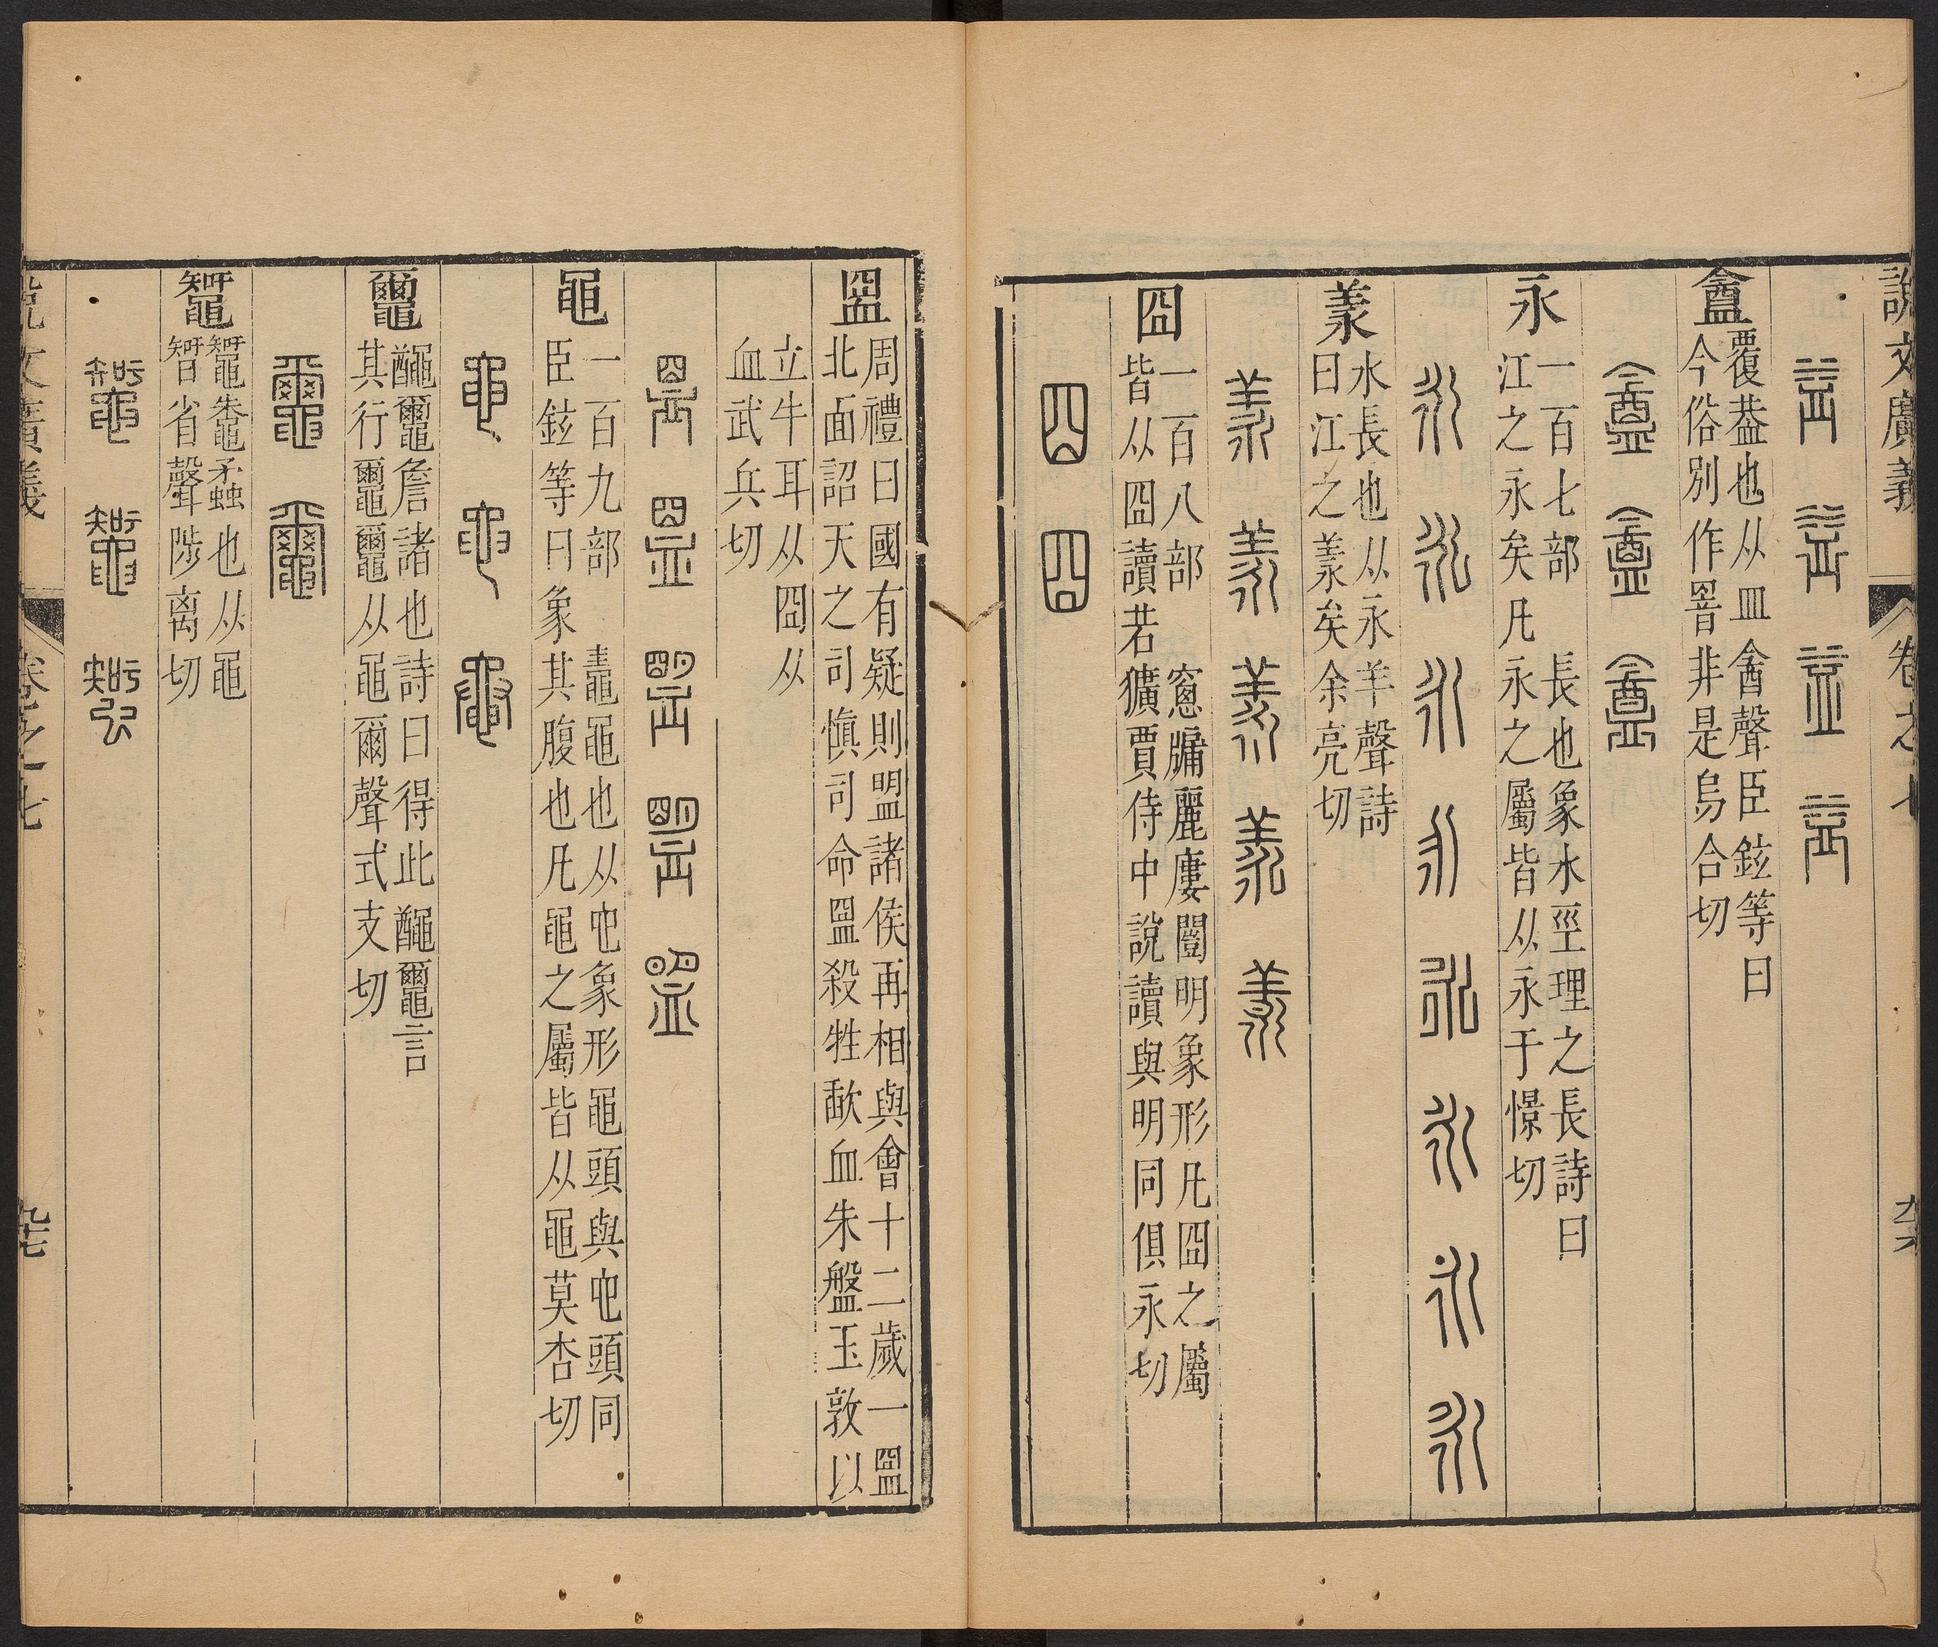 說文廣義
卷之七
盇 盇 盇 盇
盦
覆葢也从皿酓聲臣鉉等曰
今俗別作罯非是烏合切
盦 盦 盦
永
一百七部 長也象水巠理之長詩曰
江之永矣凡永之屬皆从永于憬切
永 永 永 永 永 永 永 永
羕
水長也从永羊聲詩
曰江之羕矣余亮切
羕 羕 羕 羕 羕
囧
一百八部 窻牖麗廔闓明象形凡囧之屬
皆从囧讀若獷賈侍中說讀與明同俱永切
囧 囧
盟
周禮曰國有疑則盟諸侯再相與會十二歲一盟
北面詔天之司慎司命盟殺牲歃血朱盤玉敦以
立牛耳从囧从
血武兵切
盟 盟 盟 盟 盟
黽
一百九部 鼃黽也从它象形黽頭與它頭同
臣鉉等曰象其腹也凡黽之屬皆从黽莫杏切
黽 黽 黽
鼆
其行
詹諸也詩曰得此
言
从黽爾聲式支切
鼅
鼅鼄蟊也从黽
省聲陟离切
鼅 鼅
說文廣義
卷之七